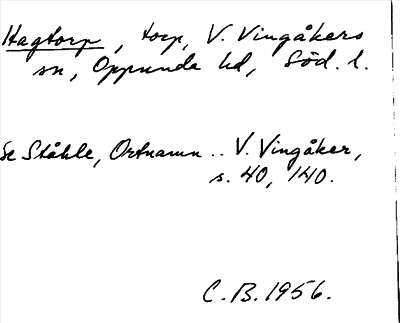 Hagtorp, torp, V. Vingåkers
sn, Oppunda hd, Söd. l.
Se Ståhle, Ortnamn .. V. Vingåker,
s. 40, 140.
C. B. 1956.